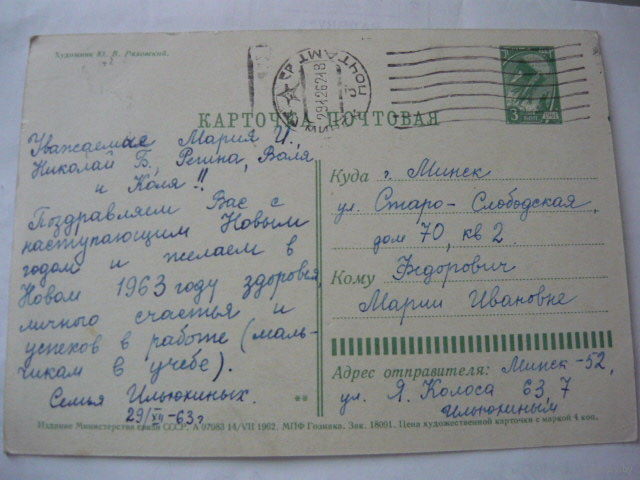 Художник Ю. В. Ряховский.
КАРТОЧКА ПОЧТОВАЯ
3
Уважаемые Мария И.,
Николай Б., Регина, Валя
и Коля!!
Поздравляем Вас с
наступающим Новым
годом и желаем в
Новом 1963 году здоровья,
личного счастья и
успехов в работе (маль-
чикам в учебе).
Семья Ильюхиных.
29/XII-63 г
Куда г. Минск
ул. Старо-Слободская,
дом 70, кв 2
Кому Федорович
Марии Ивановне
Адрес отправителя: Минск-52,
ул. Я. Коласа 63, 7
Ильюхиным
**
Издание Министерства связи СССР. А 07083 14/VII 1962. МПФ Гознака. Зак. 18091. Цена художественной карточки с маркой 4 коп.